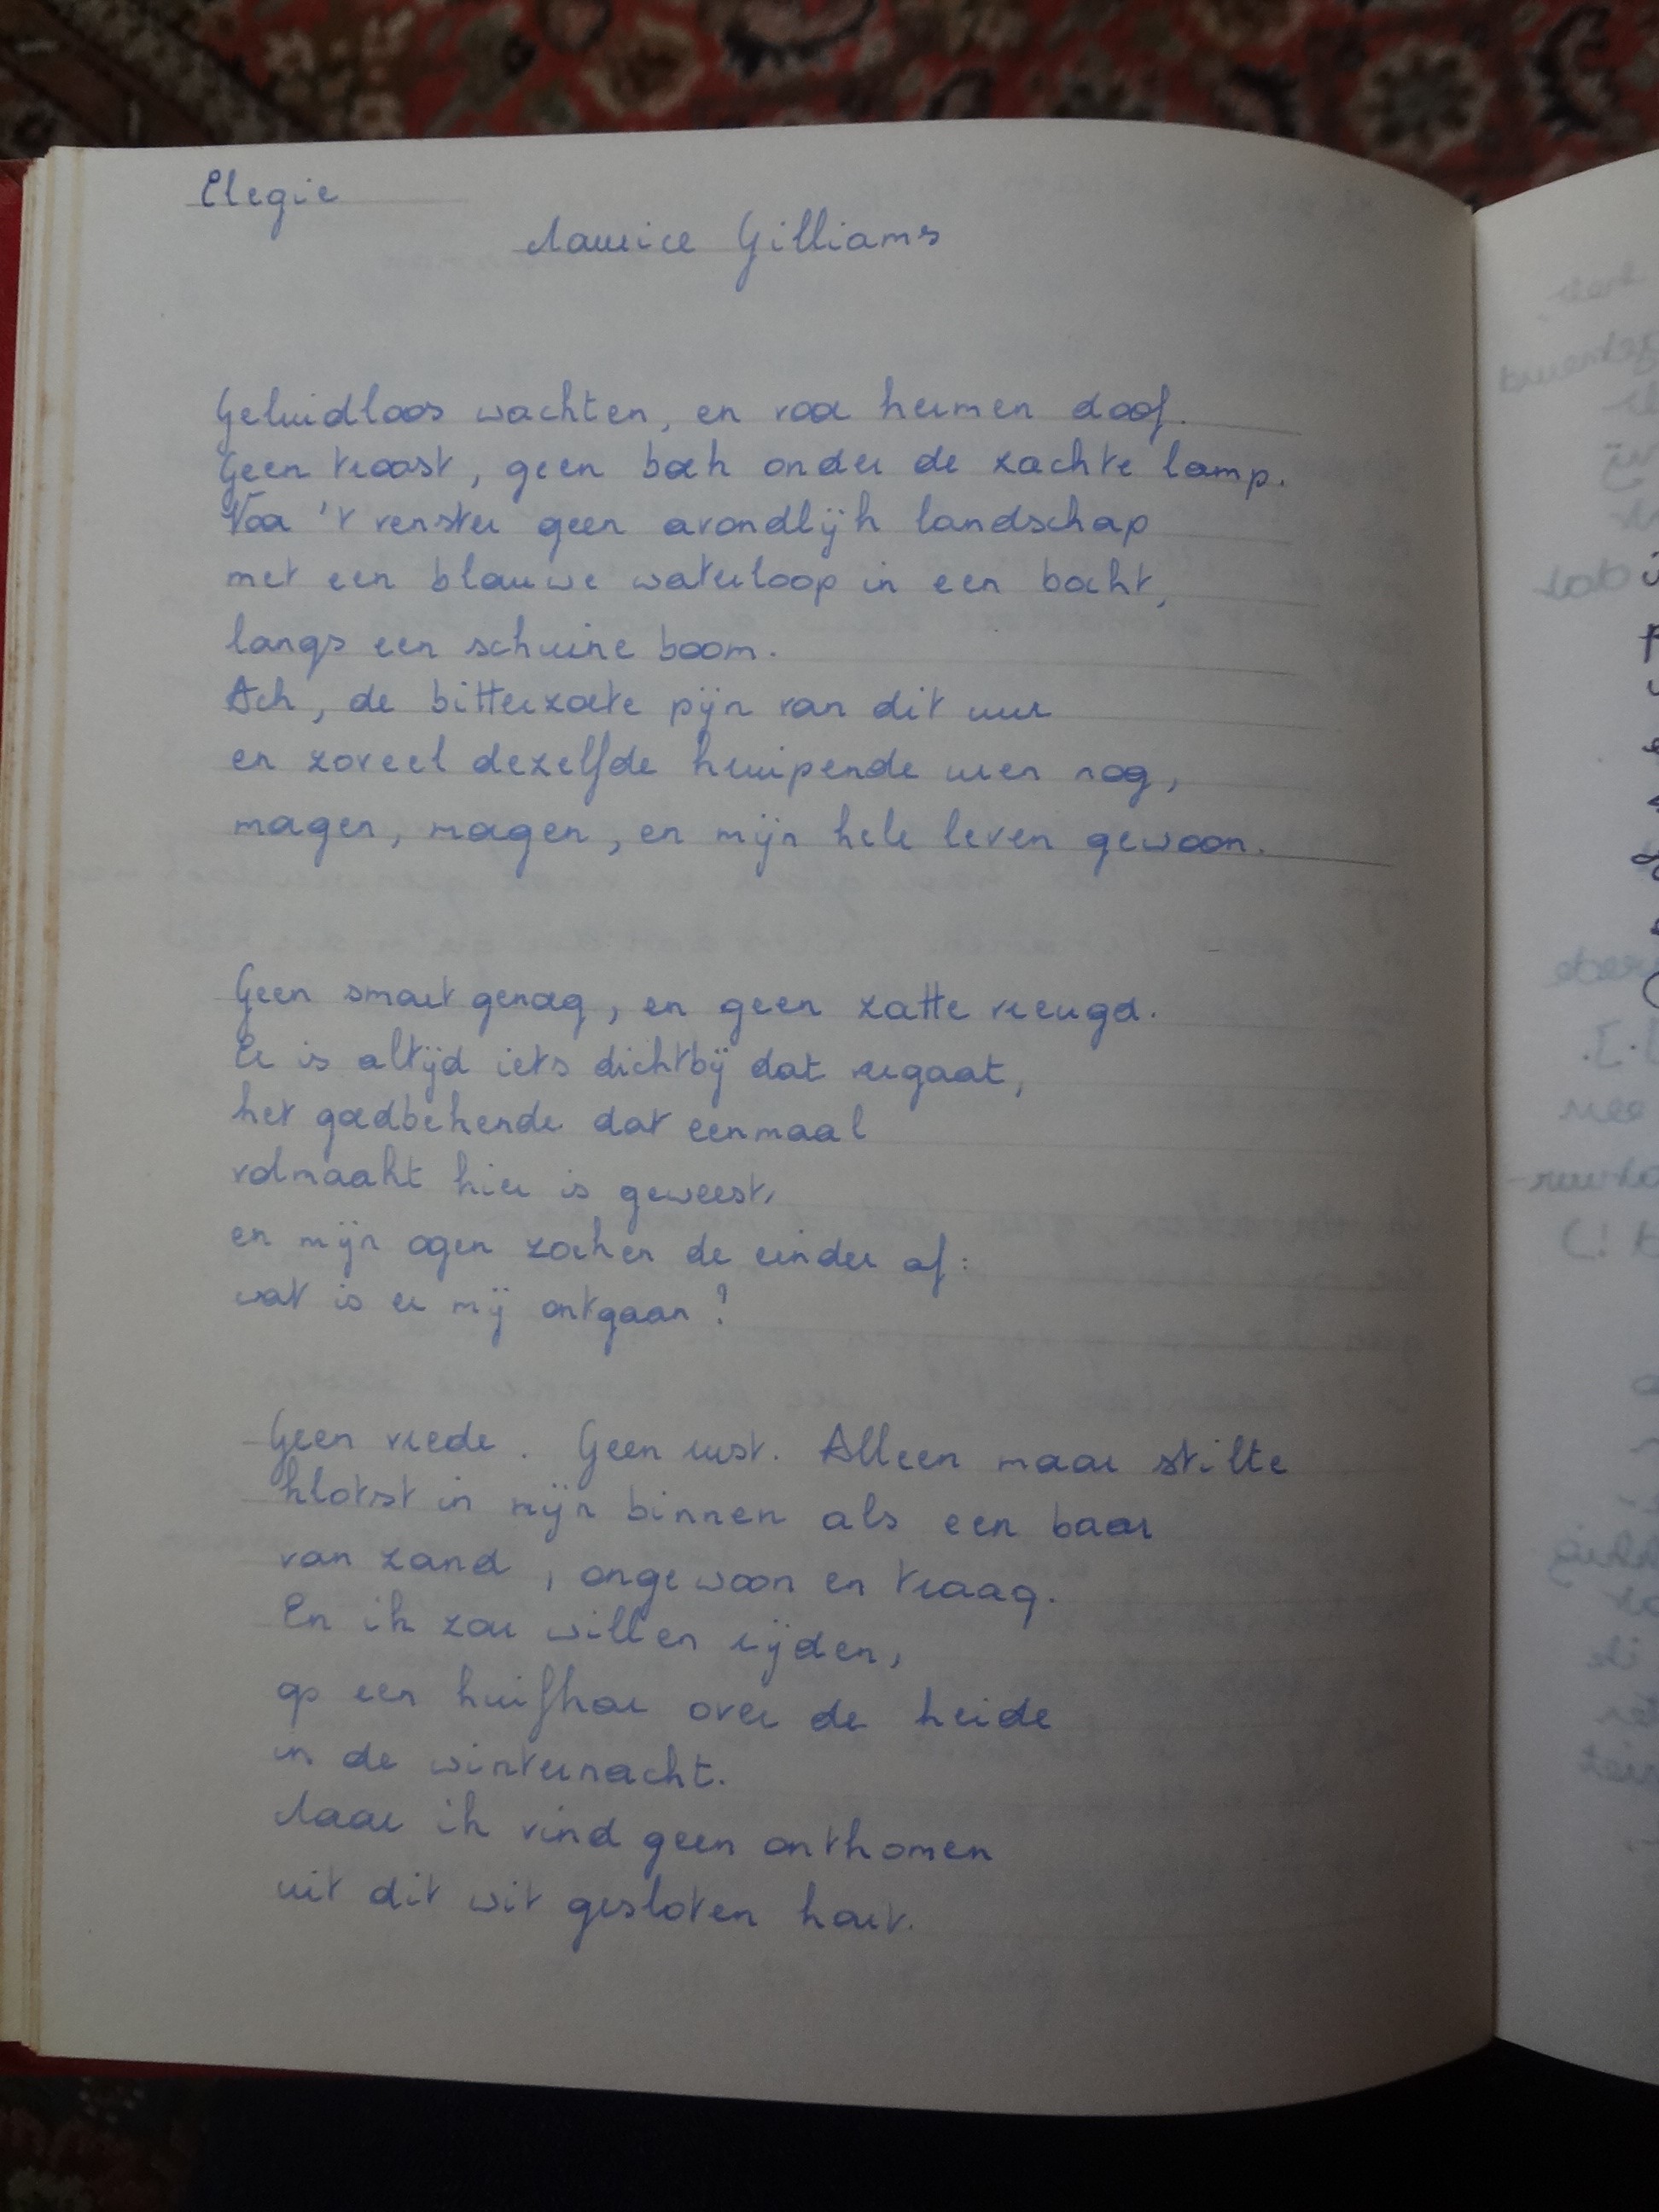 Elegie
Maurice Gilliams
Geluidloos wachten, en voor kermen doof.
Geen troost, geen boek onder de zachte lamp.
Voor 't venster geen avondlijk landschap
met een blauwe waterloop in een bocht,
langs een schuine boom.
Ach, de bitterzoete pijn van dit uur
en zoveel dezelfde kruipende uren nog,
magen, magen, en mijn hele leven gewoon.
Geen smart genoeg, en geen zatte vreugd.
Er is altijd iets dichtbij dat vergaat,
het goedbekende dat eenmaal
volmaakt hier is geweest,
en mijn ogen zoeken de einder af:
wat is er mij ontgaan?
Geen vrede. Geen rust. Alleen maar stilte
klotst in mijn binnen als een baar
van zand, ongewoon en traag.
En ik zou willen rijden,
op een huifkar over de heide
in de winternacht.
Maar ik vind geen ontkomen
uit dit wit gesloten hart.